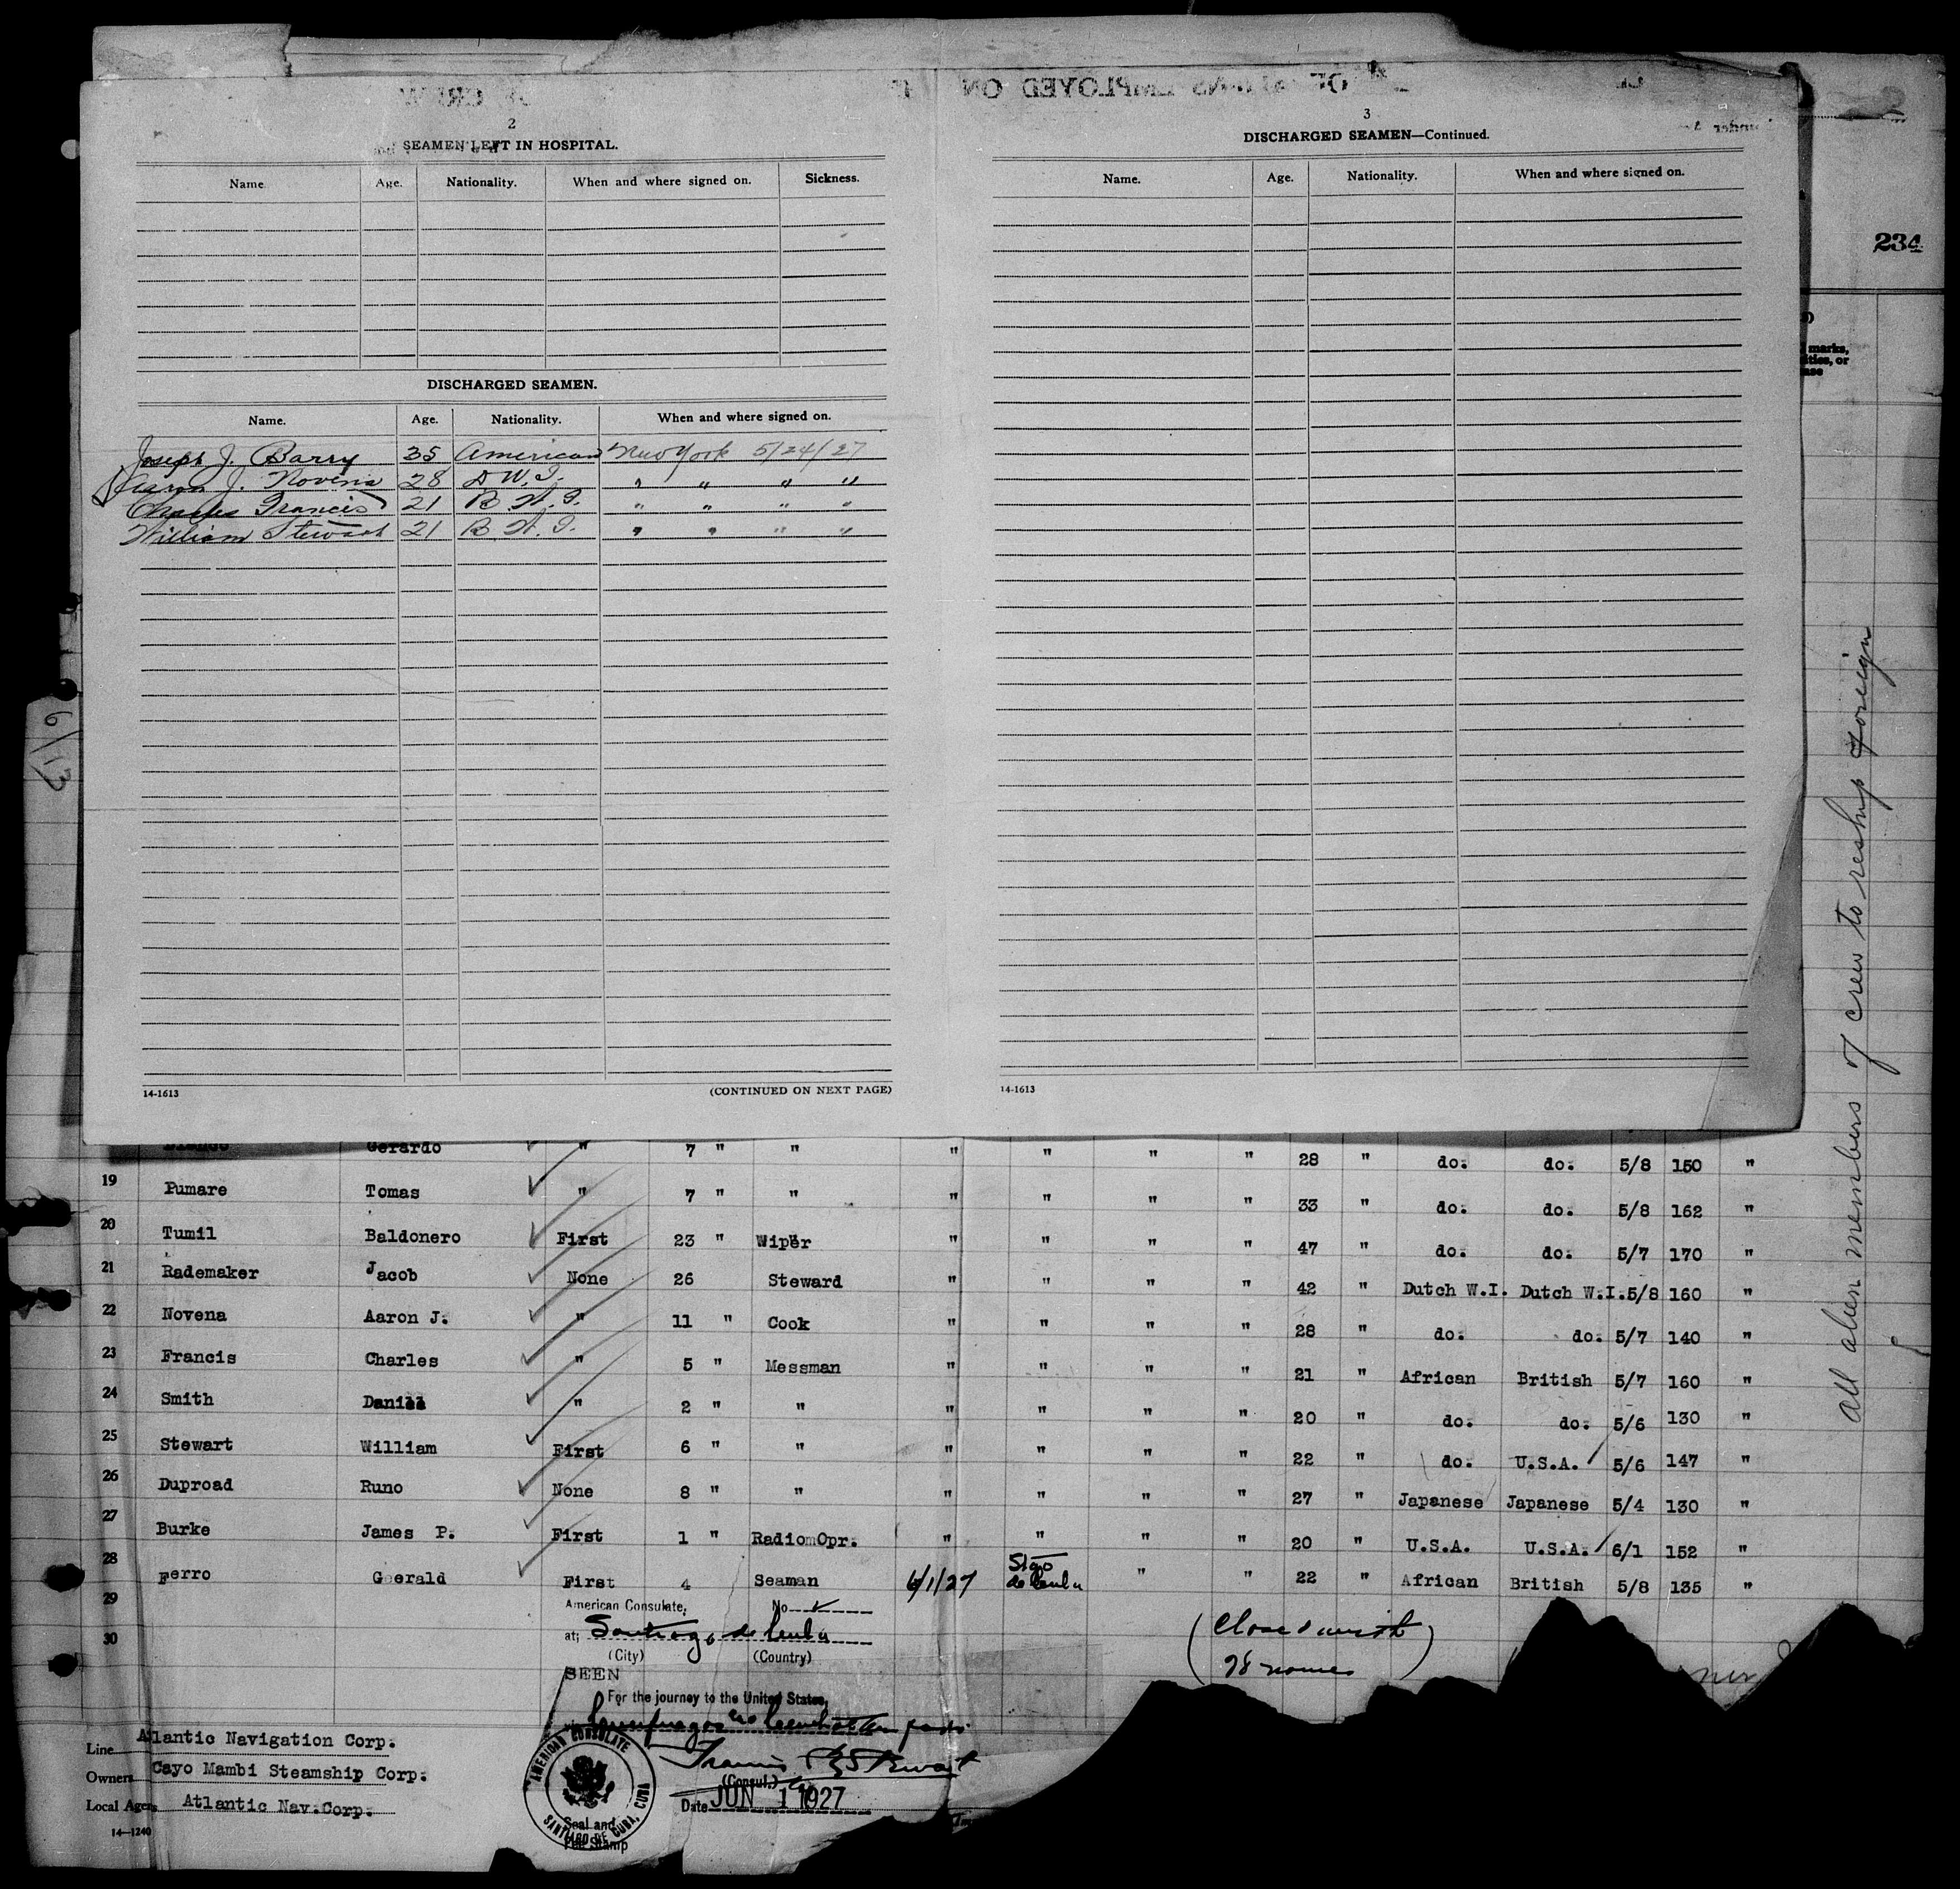 2
SEAMEN LEFT IN HOSPITAL.
Name. Age. Nationality. When and where signed on. Sickness.
DISCHARGED SEAMEN.
Name. Age. Nationality. When and where signed on.
Joseph J. Barry 35 American New York 5/24/27
Aaron J. Novena 28 D.W.I. " " " "
Charles Francis 21 B.W.I. " " " "
William Stewart 21 B.W.I. " " " "
14-1613 (CONTINUED ON NEXT PAGE)
3
DISCHARGED SEAMEN—Continued.
Name. Age. Nationality. When and where signed on.
14-1613
234
marks,
or
6/13
All alien members of crew to reship foreign
Gerardo " 7 " " " " " " 28 " do. do. 5/8 150 "
19 Pumare Tomas " 7 " " " " " " 33 " do. do. 5/8 162 "
20 Tumil Baldonero First 23 " Wiper " " " " 47 " do. do. 5/7 170 "
21 Rademaker Jacob None 26 Steward " " " " 42 " Dutch W.I. Dutch W.I. 5/8 160 "
22 Novena Aaron J. " 11 " Cook " " " " 28 " do. do. 5/7 140 "
23 Francis Charles " 5 " Messman " " " " 21 " African British 5/7 160 "
24 Smith " 2 " " " " " " 20 " do. do. 5/6 130 "
25 Stewart William First 6 " " " " " " 22 " do. U.S.A. 5/6 147 "
26 Duproad Runo None 8 " " " " " " 27 " Japanese Japanese 5/4 130 "
27 Burke James P. First 1 " Radio Opr. " " " " 20 " U.S.A. U.S.A. 6/1 152 "
28 Ferro Geerald First 4 Seaman 6/1/27 Stgo de Cuba " " 22 " African British 5/8 135 "
29
30
American Consulate, No
at; Santiago de Cuba
(City) (Country)
SEEN
For the journey to the United States,
(Consul.)
Date JUN 1 1927
AMERICAN CONSULATE
SANTIAGO DE CUBA, CUBA
Seal and
Fee Stamp
(Closed with
28 names)
Line Atlantic Navigation Corp.
Owners Cayo Mambi Steamship Corp.
Local Agents Atlantic Nav. Corp.
14—1240